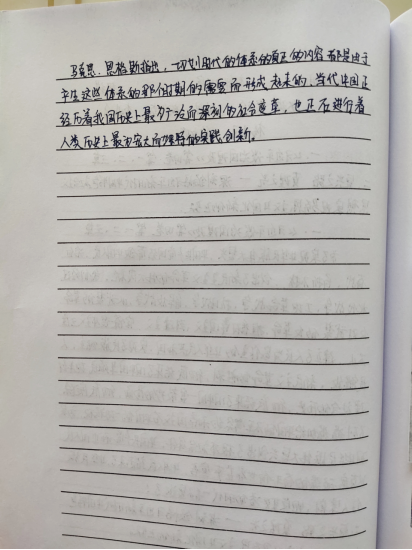 马克思、恩格斯指出，一切划时代的体系的真正的内容都是由于
产生这些体系的那个时期的需要而形成起来的，当代中国正
经历着我国历史上最为广泛而深刻的社会变革，也正在进行着
人类历史上最为宏大而独特的实践创新。